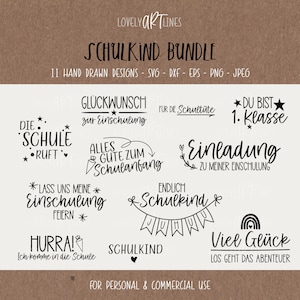 LOVELY ART LINES
SCHULKIND BUNDLE
11 HAND DRAWN DESIGNS - SVG - DXF - EPS - PNG - JPEG
GLÜCKWUNSCH
zur Einschulung
FÜR DIE Schultüte
DU BIST
1. Klasse
DIE
SCHULE
RUFT
ALLES
GUTE ZUM
Schulanfang
Einladung
ZU MEINER EINSCHULUNG
LASS UNS MEINE
Einschulung
FEIERN
ENDLICH
Schulkind
HURRA!
Ich komme in die Schule
SCHULKIND
Viel Glück
LOS GEHT DAS ABENTEUER
FOR PERSONAL & COMMERCIAL USE